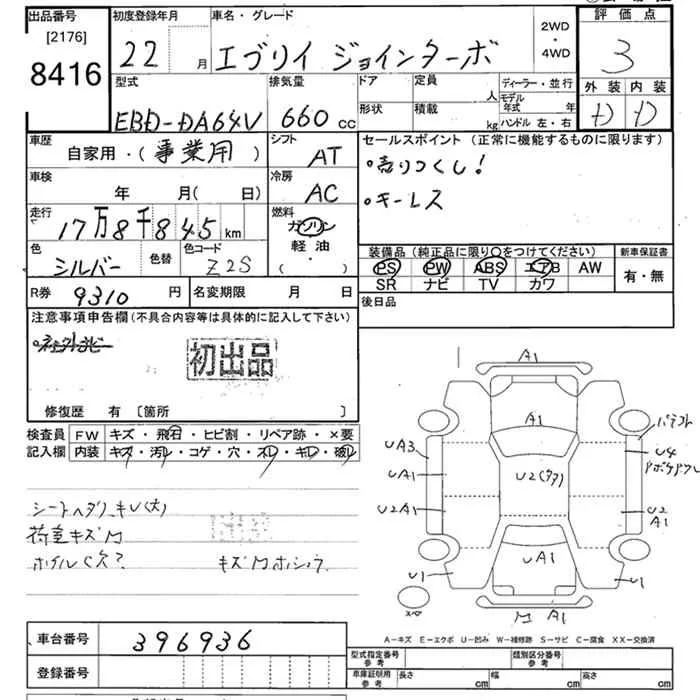 出品番号
[2176]
8416
初度登録年月
22 月
車名・グレード
エブリイ ジョインターボ
2WD
・
4WD
評価点
3
外装 内装
D D
型式
EBD-DA64V
排気量
660 cc
ドア
形状
定員 人
積載 kg
ディーラー・並行
モデル年式 年
ハンドル 左・右
車歴
自家用・(事業用)
シフト
AT
車検
年 月(日)
冷房
AC
走行
17万8千845 km
燃料
ガソリン
軽油
( ・ )
色
シルバー
色替
色コード
Z2S
R券 9310 円
名変期限 月 日
セールスポイント (正常に機能するものに限ります)
・売りつくし!
・キーレス
装備品(純正品に限り○をつけてください)
PS PW ABS エアB AW
SR ナビ TV カワ
新車保証書
有・無
後日品
注意事項申告欄(不具合内容等は具体的に記入して下さい)
初出品
修復歴 有 〔箇所 〕
検査員 FW キズ・飛石・ヒビ割・リペア跡・×要
記入欄 内装 キズ・汚レ・コゲ・穴・スレ・キレ・破レ
シートヘタリ、キレ(大)
荷室キズM
ホイルC欠?
キズMホシュウ
A1
A1
UA3
UA1
U2A1
U2
U4
U2
A1
UA1
U1
U1
スペ
M A1
A-キズ E-エクボ U-凹み W-補修跡 S-サビ C-腐食 XX-交換済
車台番号 396936
登録番号
型式指定番号
参考
類別区分番号
参考
車庫証明用
参考
長さ cm 幅 cm 高さ cm